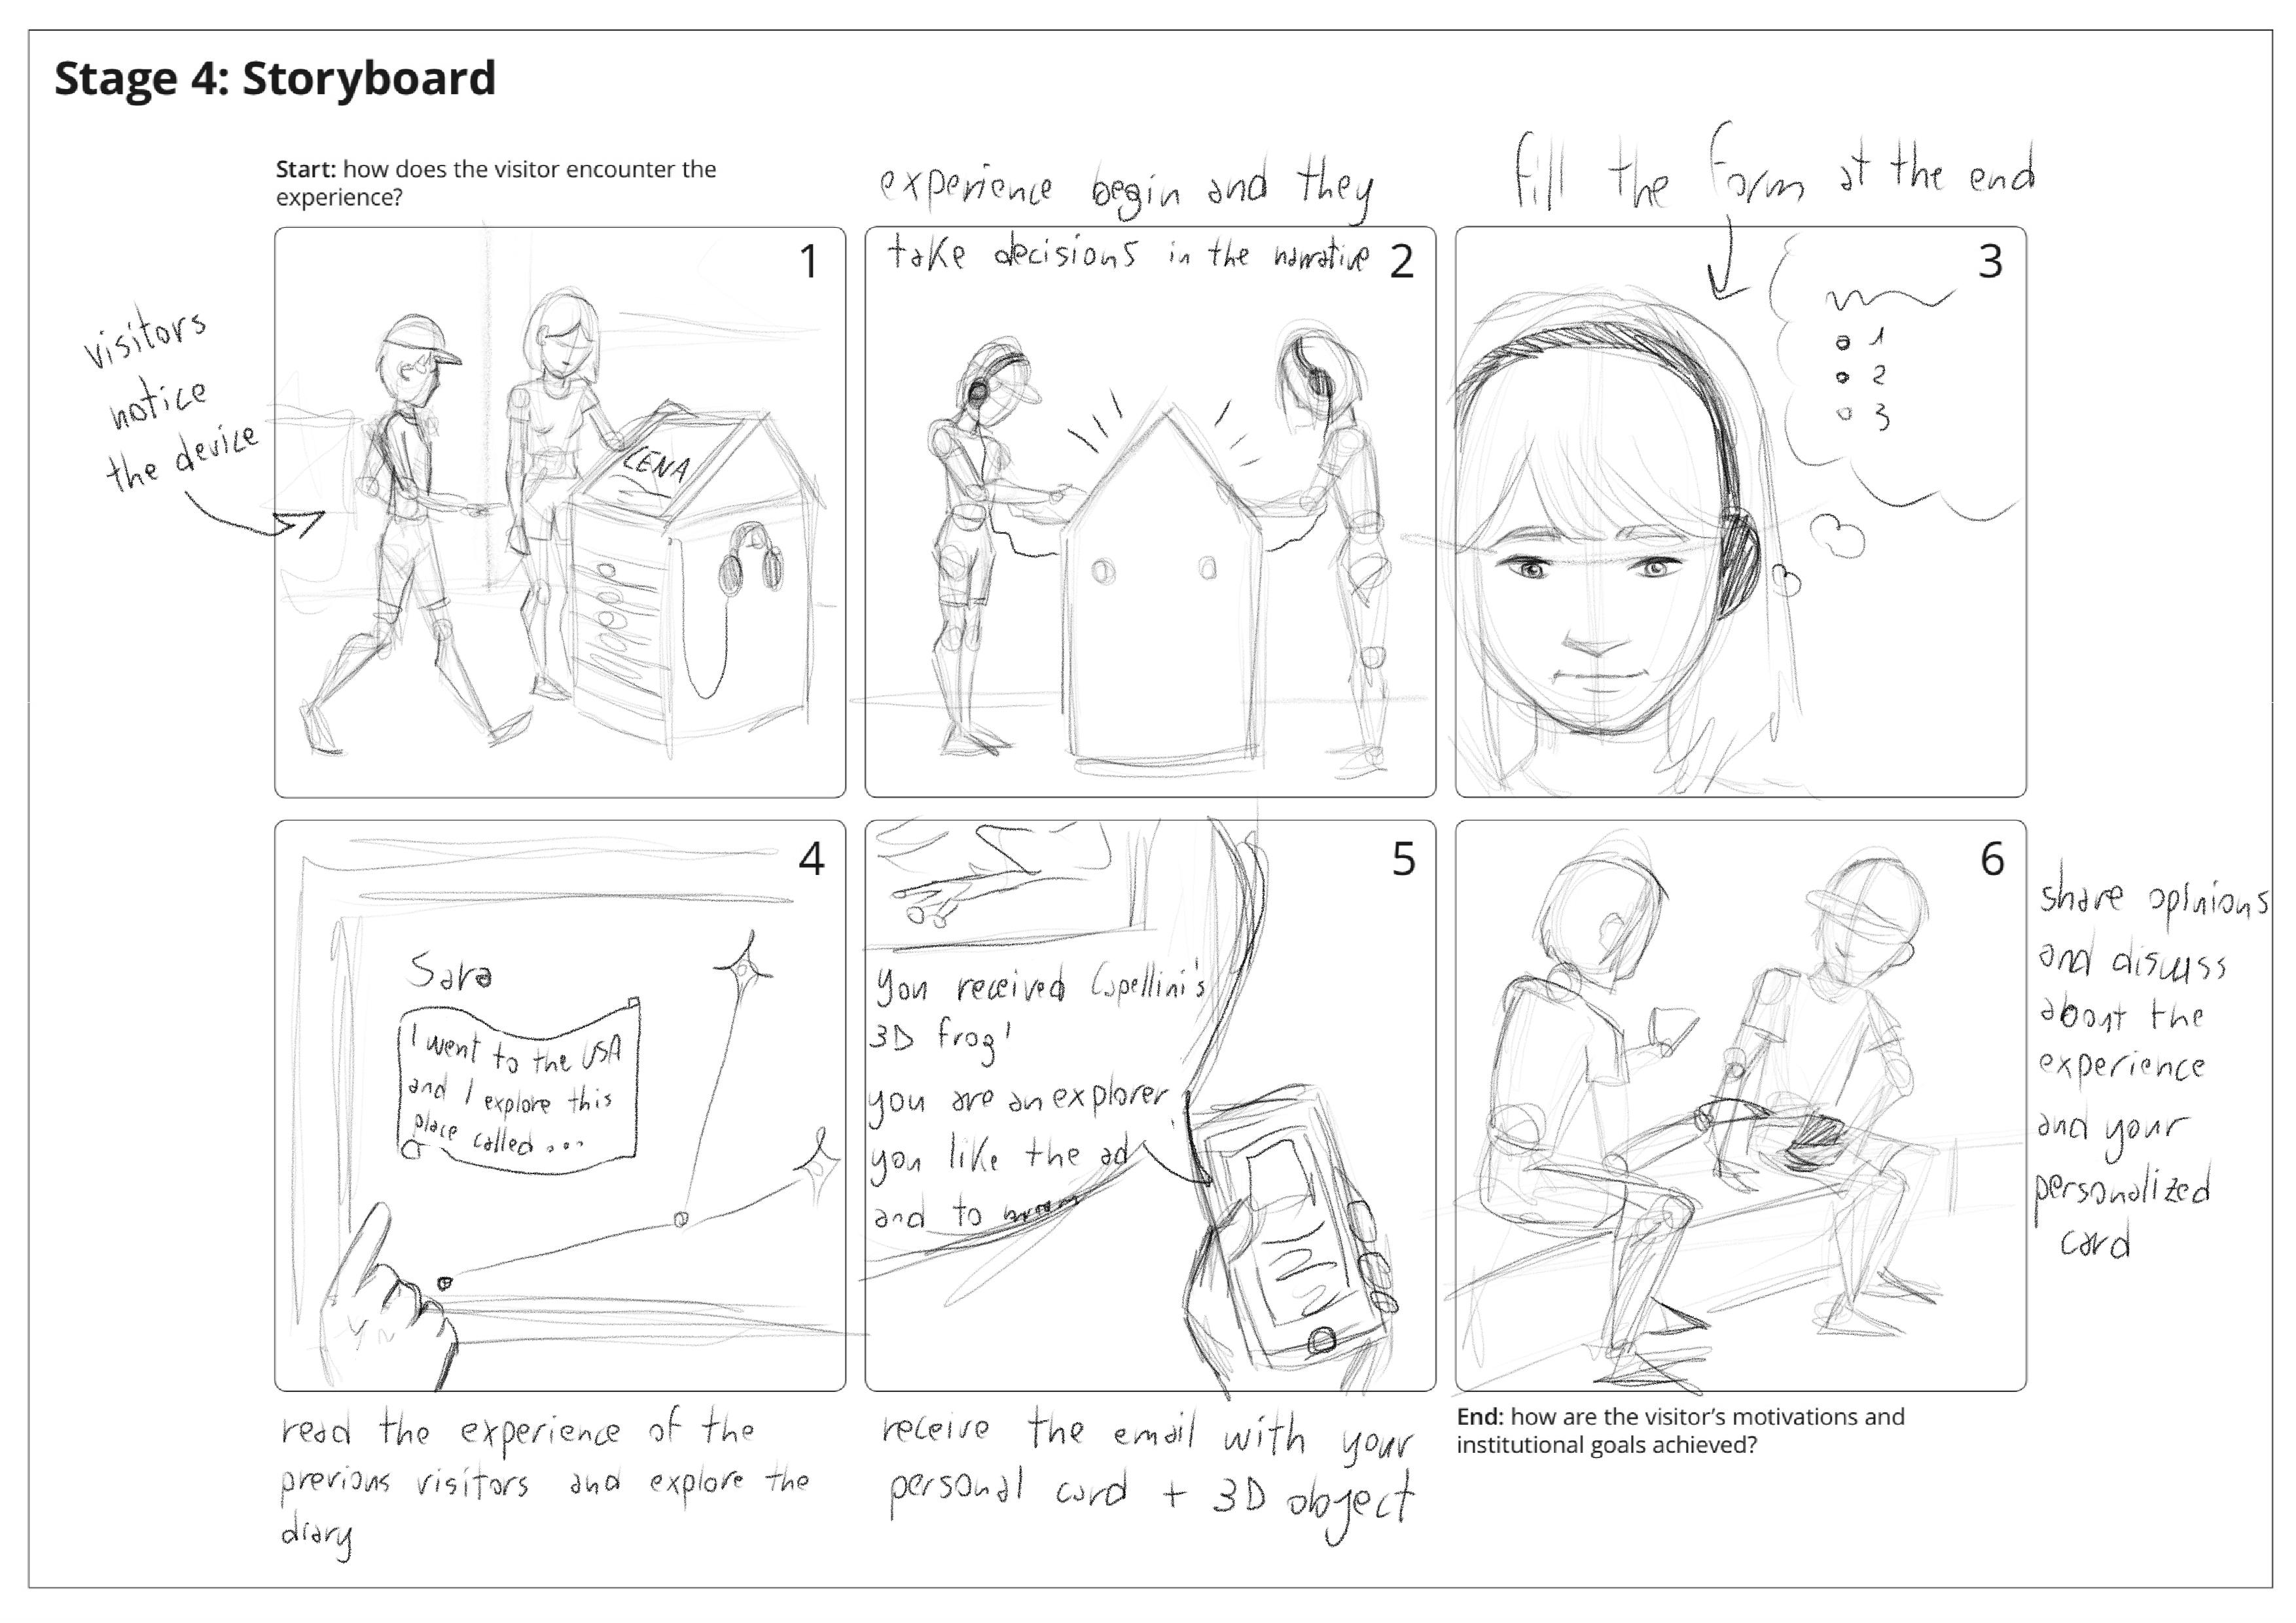 Stage 4: Storyboard
Start: how does the visitor encounter the
experience?
visitors
notice
the device
1
CENA
experience begin and they
take decisions in the narrative
2
fill the form at the end
3
1
2
3
4
Sara
I went to the USA
and I explore this
place called ...
read the experience of the
previous visitors and explore the
diary
5
you received Capellini's
3D frog!
you are an explorer
you like the ad
and to
receive the email with your
personal card + 3D object
6
share opinions
and discuss
about the
experience
and your
personalized
card
End: how are the visitor's motivations and
institutional goals achieved?